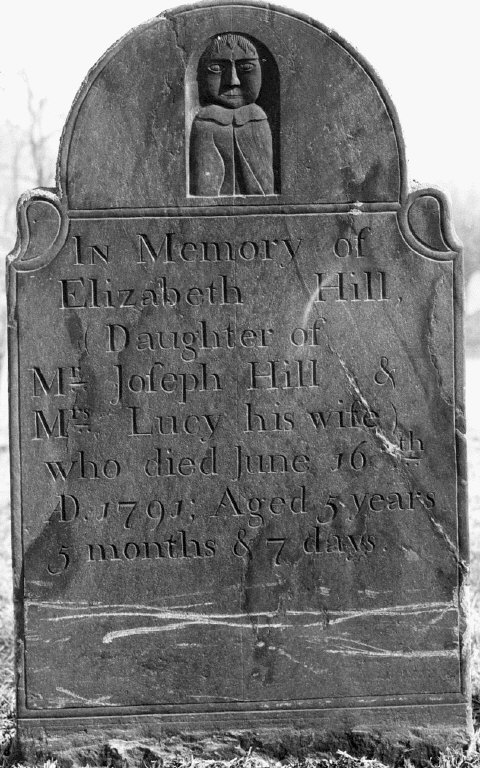 In Memory of
Elizabeth Hill,
(Daughter of
Mr Joſeph Hill &
Mrs Lucy his wife)
who died June 16th
D. 1791; Aged 5 years
5 months & 7 days.